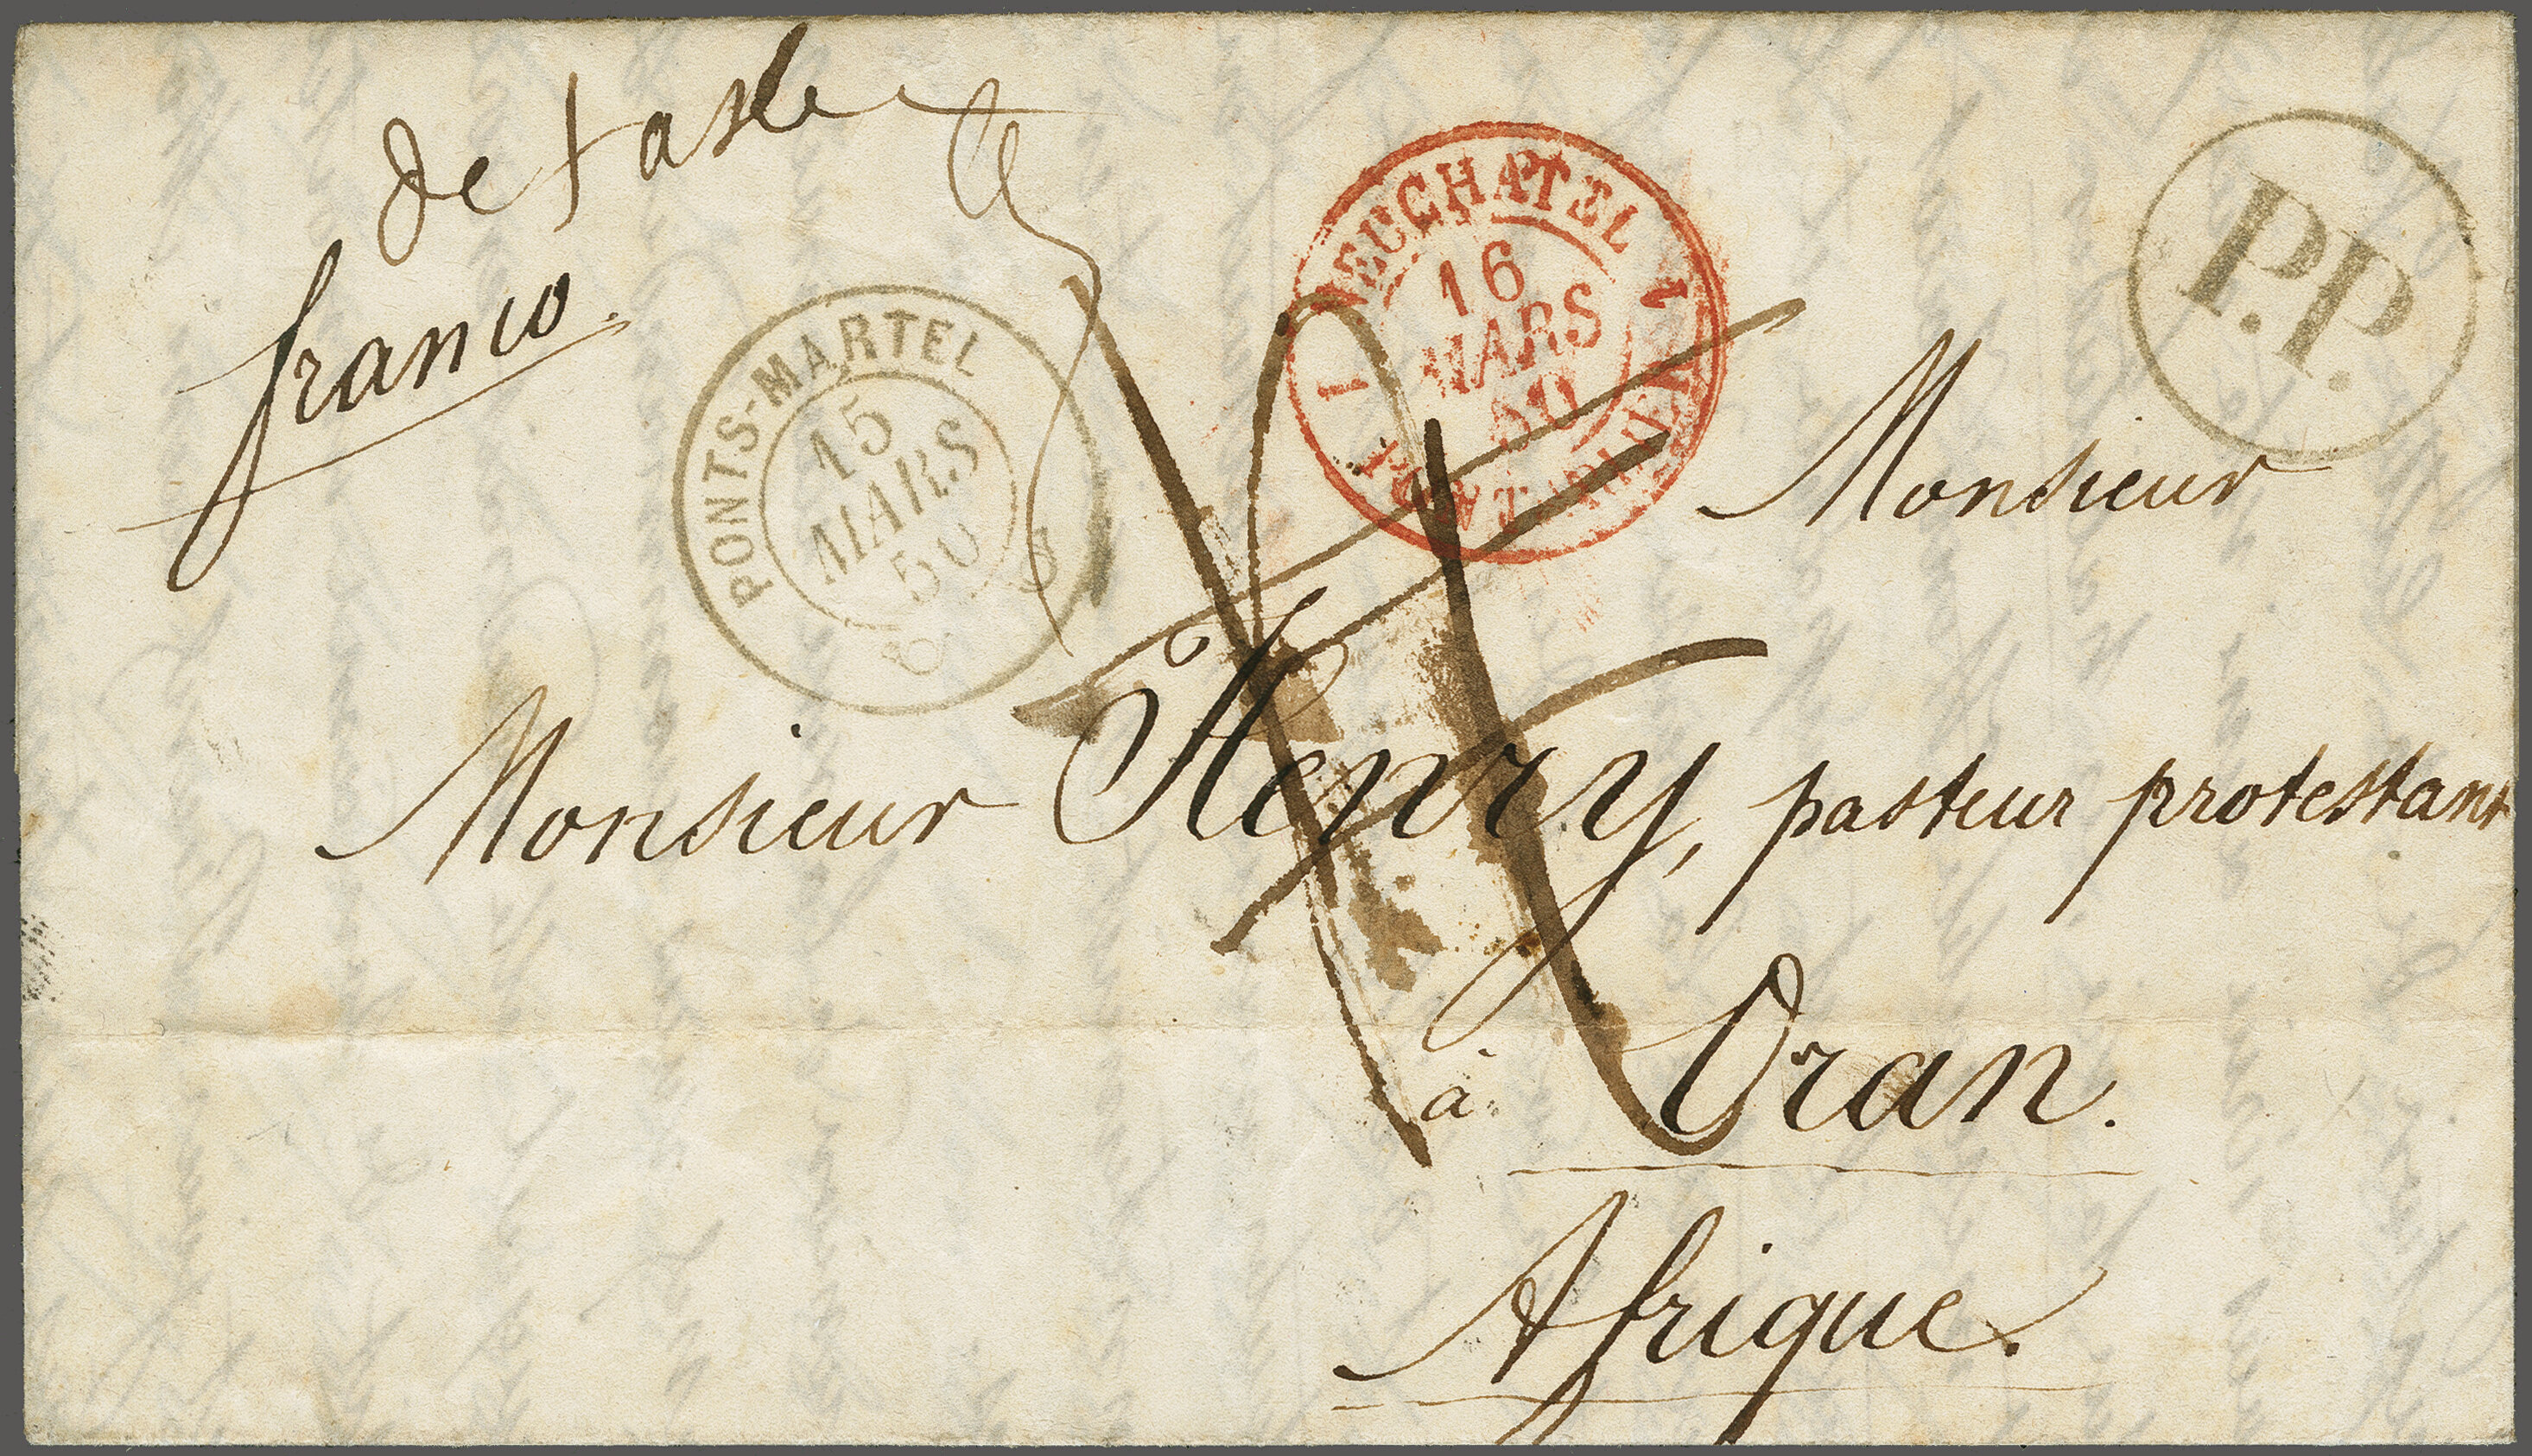 detaxe
franco.
PONTS-MARTEL
15
MARS
50
NEUCHATEL
16
MARS
50
P.P.
Monsieur
Monsieur Henry, pasteur protestant
à Oran.
Afrique.